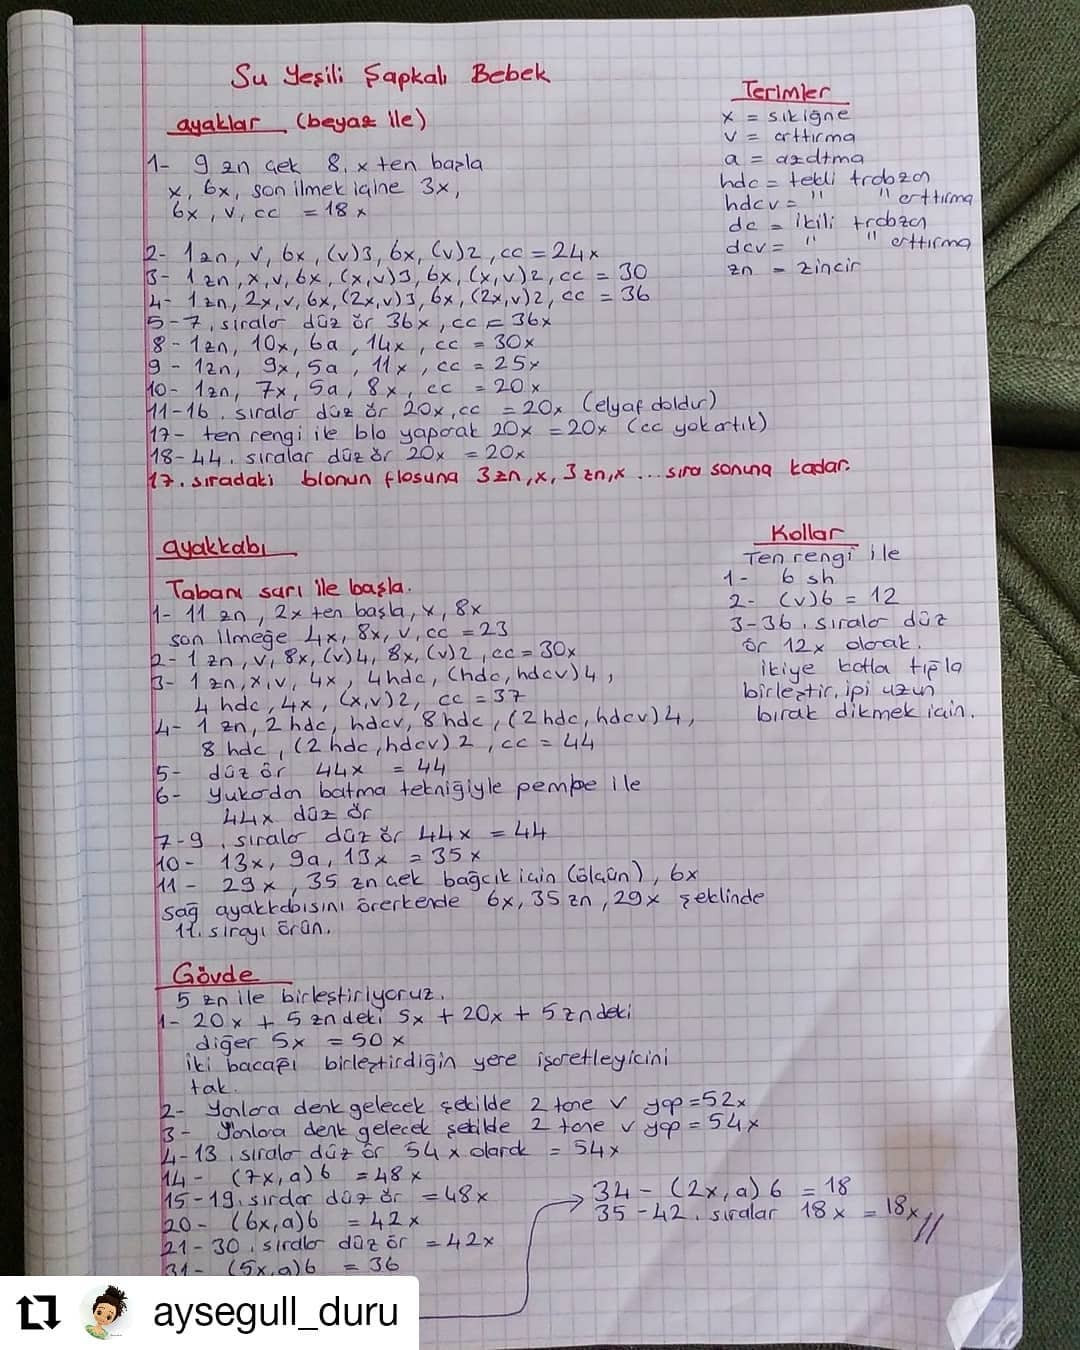 Su Yeşili Şapkalı Bebek
ayaklar (beyaz ile)
1- 9 zn çek 8. x ten başla
x, 6x, son ilmek içine 3x,
6x, v, cc = 18x
2- 1zn, v, 6x, (v)3, 6x, (v)2, cc = 24x
3- 1zn, x, v, 6x, (x,v)3, 6x, (x,v)2, cc = 30
4- 1zn, 2x, v, 6x, (2x,v)3, 6x, (2x,v)2, cc = 36
5-7. sıralar düz ör 36x, cc = 36x
8- 1zn, 10x, 6a, 14x, cc = 30x
9- 1zn, 9x, 5a, 11x, cc = 25x
10- 1zn, 7x, 5a, 8x, cc = 20x
11-16. sıralar düz ör 20x, cc = 20x (elyaf doldur)
17- ten rengi ile blo yaparak 20x = 20x (cc yok artık)
18-44. sıralar düz ör 20x = 20x
17. sıradaki blonun flosuna 3zn, x, 3zn, x ... sıra sonuna kadar.
Terimler
x = sık iğne
v = arttırma
a = azaltma
hdc = tekli trabzan
hdcv = " " arttırma
dc = ikili trabzan
dcv = " " arttırma
zn = zincir
ayakkabı
Tabanı sarı ile başla.
1- 11 zn, 2x ten başla, x, 8x
son ilmeğe 4x, 8x, v, cc = 23
2- 1 zn, v, 8x, (v)4, 8x, (v)2, cc = 30x
3- 1 zn, x, v, 4x, 4hdc, (hdc, hdcv)4,
4 hdc, 4x, (x,v)2, cc = 37
4- 1 zn, 2 hdc, hdcv, 8 hdc, (2 hdc, hdcv)4,
8 hdc, (2 hdc, hdcv)2, cc = 44
5- düz ör 44x = 44
6- Yukarıdan batma tekniğiyle pembe ile
44x düz ör
7-9. sıralar düz ör 44x = 44
10- 13x, 9a, 13x = 35x
11- 29x, 35 zn çek bağcık için (ölçün), 6x
sağ ayakkabısını örerkende 6x, 35 zn, 29x şeklinde
11. sırayı örün.
Kollar
Ten rengi ile
1- 6 sh
2- (v)6 = 12
3-36. sıralar düz
ör 12x olarak.
ikiye katla tıpla
birleştir, ipi uzun
bırak dikmek için.
Gövde
5 zn ile birleştiriyoruz.
1- 20x + 5 zndeki 5x + 20x + 5 zndeki
diğer 5x = 50x
iki bacağı birleştirdiğin yere işaretleyicini
tak.
2- Yanlara denk gelecek şekilde 2 tane v yap = 52x
3- Yanlara denk gelecek şekilde 2 tane v yap = 54x
4-13. sıralar düz ör 54x olarak = 54x
14- (7x, a)6 = 48x
15-19. sıralar düz ör = 48x
20- (6x, a)6 = 42x
21-30. sıralar düz ör = 42x
31- (5x, a)6 = 36
34- (2x, a)6 = 18
35-42. sıralar 18x = 18x //
aysegull_duru